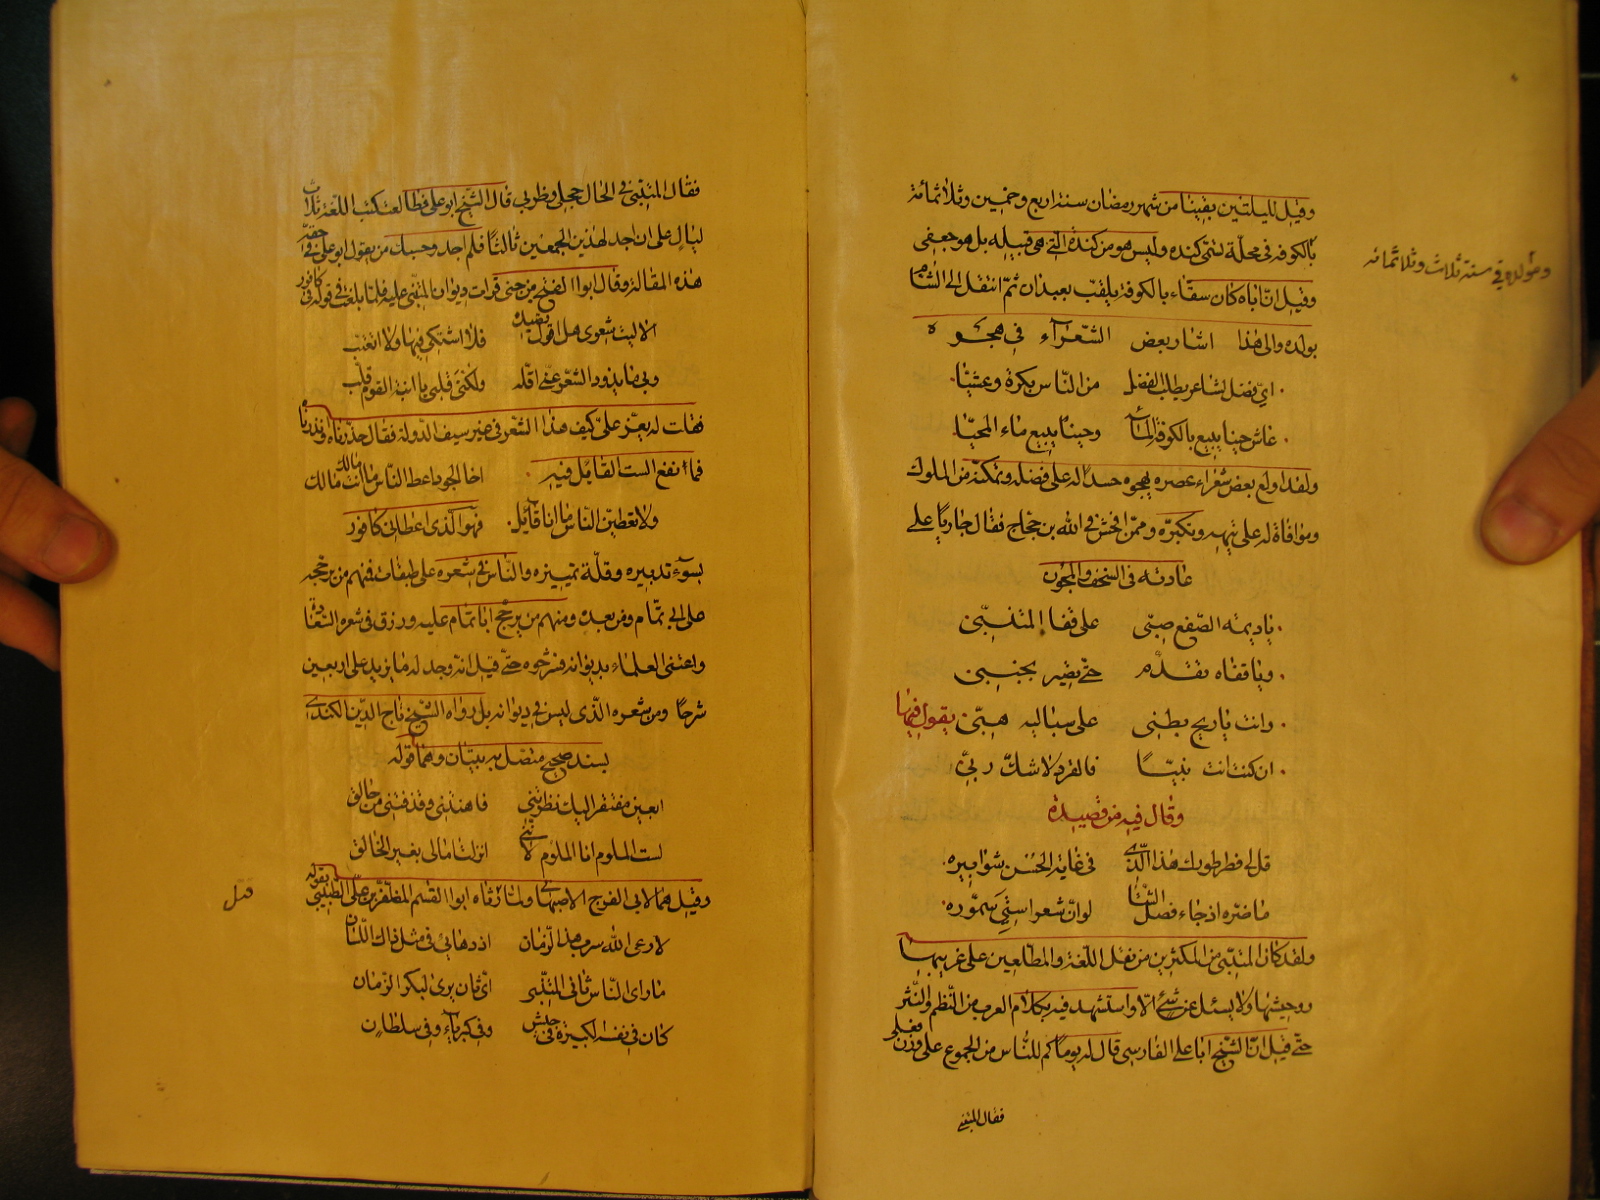 وقيل لليلتين بقيتا من شهر رمضان سنة اربع وخمسين وثلاثمائة
ومولده في سنة ثلاث وثلاثمائة
بالكوفه فى محلّة تسمّى كنده وليس هو من كندة الّتى هى قبيله بل هو جعفى
وقيل انّ اباه كان سقّاء بالكوفة يلقّب بعبدان ثمّ انتقل الى الشام
بولده والى هذا اشار بعض الشّعرآء فى هجوه
اىّ فضل لشاعر يطلب الفضل من النّاس بكرة وعشيّا
عاش حينا يبيع بالكوفة المآء وحينا يبيع ماء المحيّا
ولقد اولع بعض شعراء عصره بهجوه حسدا له على فضله وتمكنه من الملوك
وموافاة له على تيهه وتكبّره وممّن افحش فى الله بن حجّاج فقال جاريا على
عادته فى السّخف والمجون
ياديمة الصّفع صبّى على قفا المتنبّى
ويا قفاه تقدّم حتّى تصير بجنبى
وانت ياريح بطنى على سباليه هبّى يقول فيها
ان كنت انت نبيّا فالقرد لا شكّ ربّى
وقال فيه من قصيدة
قل لى فطرطورك هذا الّذى فى غاية الحسن شوابيره
ما ضرّه اذ جاء فصل الشّتا لو انّ شعر استى سمّوره
ولقد كان المتنبّى من المكثرين من نقل اللّغة والمطّلعين على غريبها
ووحشيّها ولا يسئل عن شئ الّا واستشهد فيه بكلام العرب من النّظم والنّثر
حتّى قيل انّ الشّيخ ابا على الفارسى قال له يوما كم للنّاس من الجموع على وزن فعلى
فقال المتنبّى
فقال المتنبّى فى الحال حجلى وظربى قال الشّيخ ابو على فطالعت كتب اللغة ثلاث
ليال على ان اجد لهذين الجمعين ثالثا فلم اجد وحسبك من يقول ابو على فى حقّه
هذه المقالة وقال ابو الفتح بن جنى قرات ديوان المتنبّى عليه فلمّا بلغت فى قوله فى كافور
الا ليت شعرى هل اقول قصيده فلا اشتكى فيها ولا اتعتّب
وبى ما يذود الشّعر عنّى اقلّه ولكنّ قلبى يا ابنة القوم قلّب
فقلت له يعزّ علىّ كيف هذا الشّعر فى غير سيف الدّولة فقال حذّرناه وانذرناه
فما نفع الست القائل فيه اخا الجود اعط النّاس ما انت مالك
ولا تعطينّ النّاس ما انا قائل فهو الّذى اعطانى كافور
بسوء تدبيره وقلّة تمييزه والنّاس فى شعره على طبقات فمنهم من يرجّحه
على ابى تمّام ومن بعده ومنهم من يرجّح ابا تمام عليه ورزق فى شعره السّعادة
واعتنى العلماء بديوانه فشرحوه حتّى قيل انّه وجد له ما يزيد على اربعين
شرحا ومن شعره الّذى ليس فى ديوانه بل رواه الشّيخ تاج الدّين الكندى
بسند صحيح متصل به بيتان وهما قوله
ابعين مفتقر اليك نظرتنى فاهنتنى وقذفتنى من حالق
لست الملوم انا الملوم لانّنى انزلت امالى بغير الخالق
وقيل هما لابى الفرج الاصبهانى ولمّا قتل رثاه ابو القسم المظفّر بن علىّ الطّبسى بقوله
قتل
لا رعى الله سرب هذا الزّمان اذ دهانى فى مثل ذاك اللّسان
ما راى النّاس ثانى المتنبّى اىّ ثان يرى لبكر الزّمان
كان فى نفسه الكبيرة فى جيش وفى كبرياء وفى سلطان